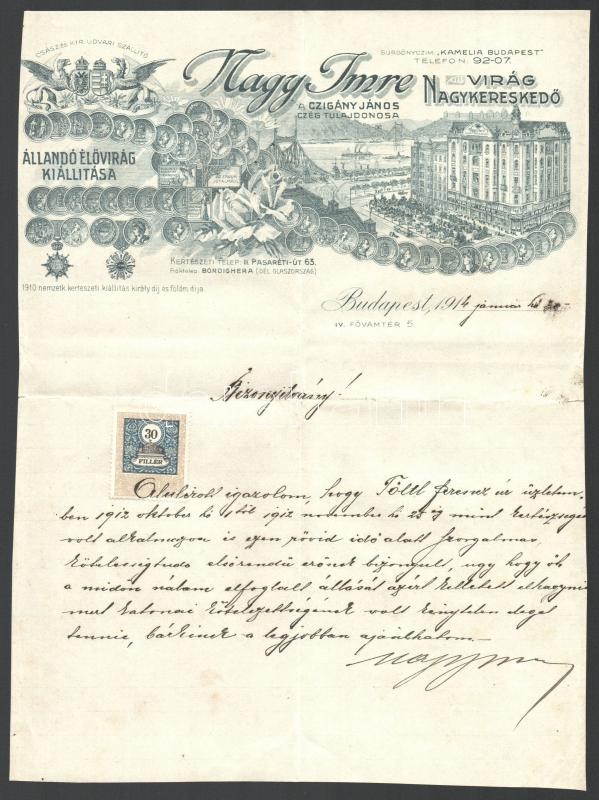 CSÁSZ. ÉS KIR. UDVARI SZÁLLITÓ
SÜRGÖNYCZIM: „KAMELIA BUDAPEST"
TELEFON: 92-07.
Nagy Imre
VIRÁG
NAGYKERESKEDŐ
A CZIGÁNY JÁNOS
CZÉG TULAJDONOSA
ÁLLANDÓ ÉLŐVIRÁG
KIÁLLITÁSA
KERTÉSZETI TELEP: II. PASARÉTI-ÚT 63.
Fióktelep: BORDIGHERA (DÉL OLASZORSZÁG)
1910 nemzetk. kertészeti kiállitás király dij és földm. dija.
Budapest, 1914 január hó 20
IV. FŐVÁMTÉR 5.
Bizonyitvány!
30
FILLÉR
Alulirott igazolom, hogy Töltl Ferencz úr üzletem-
ben 1912 oktober hó 1től 1912 november hó 25 ig mint kertészsegéd
volt alkalmazva és ezen rövid idő alatt szorgalmas,
kötelességtudó elsőrendű erőnek bizonyult, úgy hogy őt
a midőn nálam elfoglalt állását azért kellett elhagynia
mert katonai kötelezettségének volt kénytelen eleget
tennie, bárkinek a legjobban ajánlhatom.—
Nagy Imre